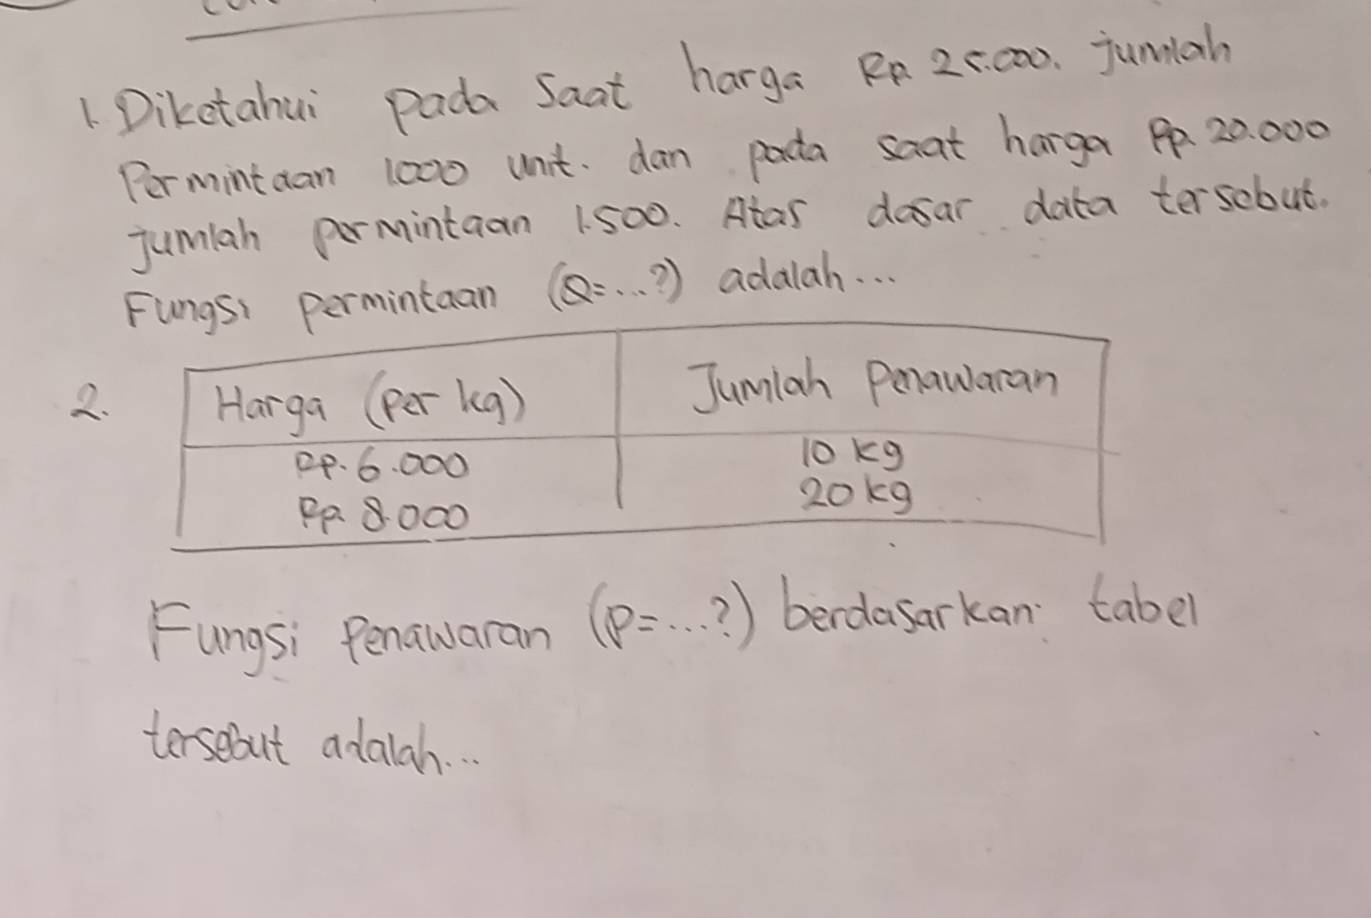 1. Diketahui pada saat harga Rp. 25.000. jumlah
Permintaan 1000 unit. dan pada saat harga Rp. 20.000
jumlah permintaan 1.500. Atas dasar data tersebut.
Fungsi permintaan (Q=...?) adalah...
2. Harga (per kg) Jumlah Penawaran
Rp. 6.000 10 kg
Rp. 8.000 20 kg
Fungsi Penawaran (P=...?) berdasarkan tabel
tersebut adalah...